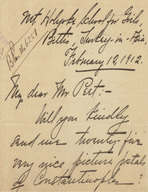 Mt. Holyoke School for Girls,
Bitlis, Turkey-in-Asia,
February 12, 1912.
My dear Mr Peet-
Will you kindly
send me twenty-five
very nice picture postals
of Constantinople?